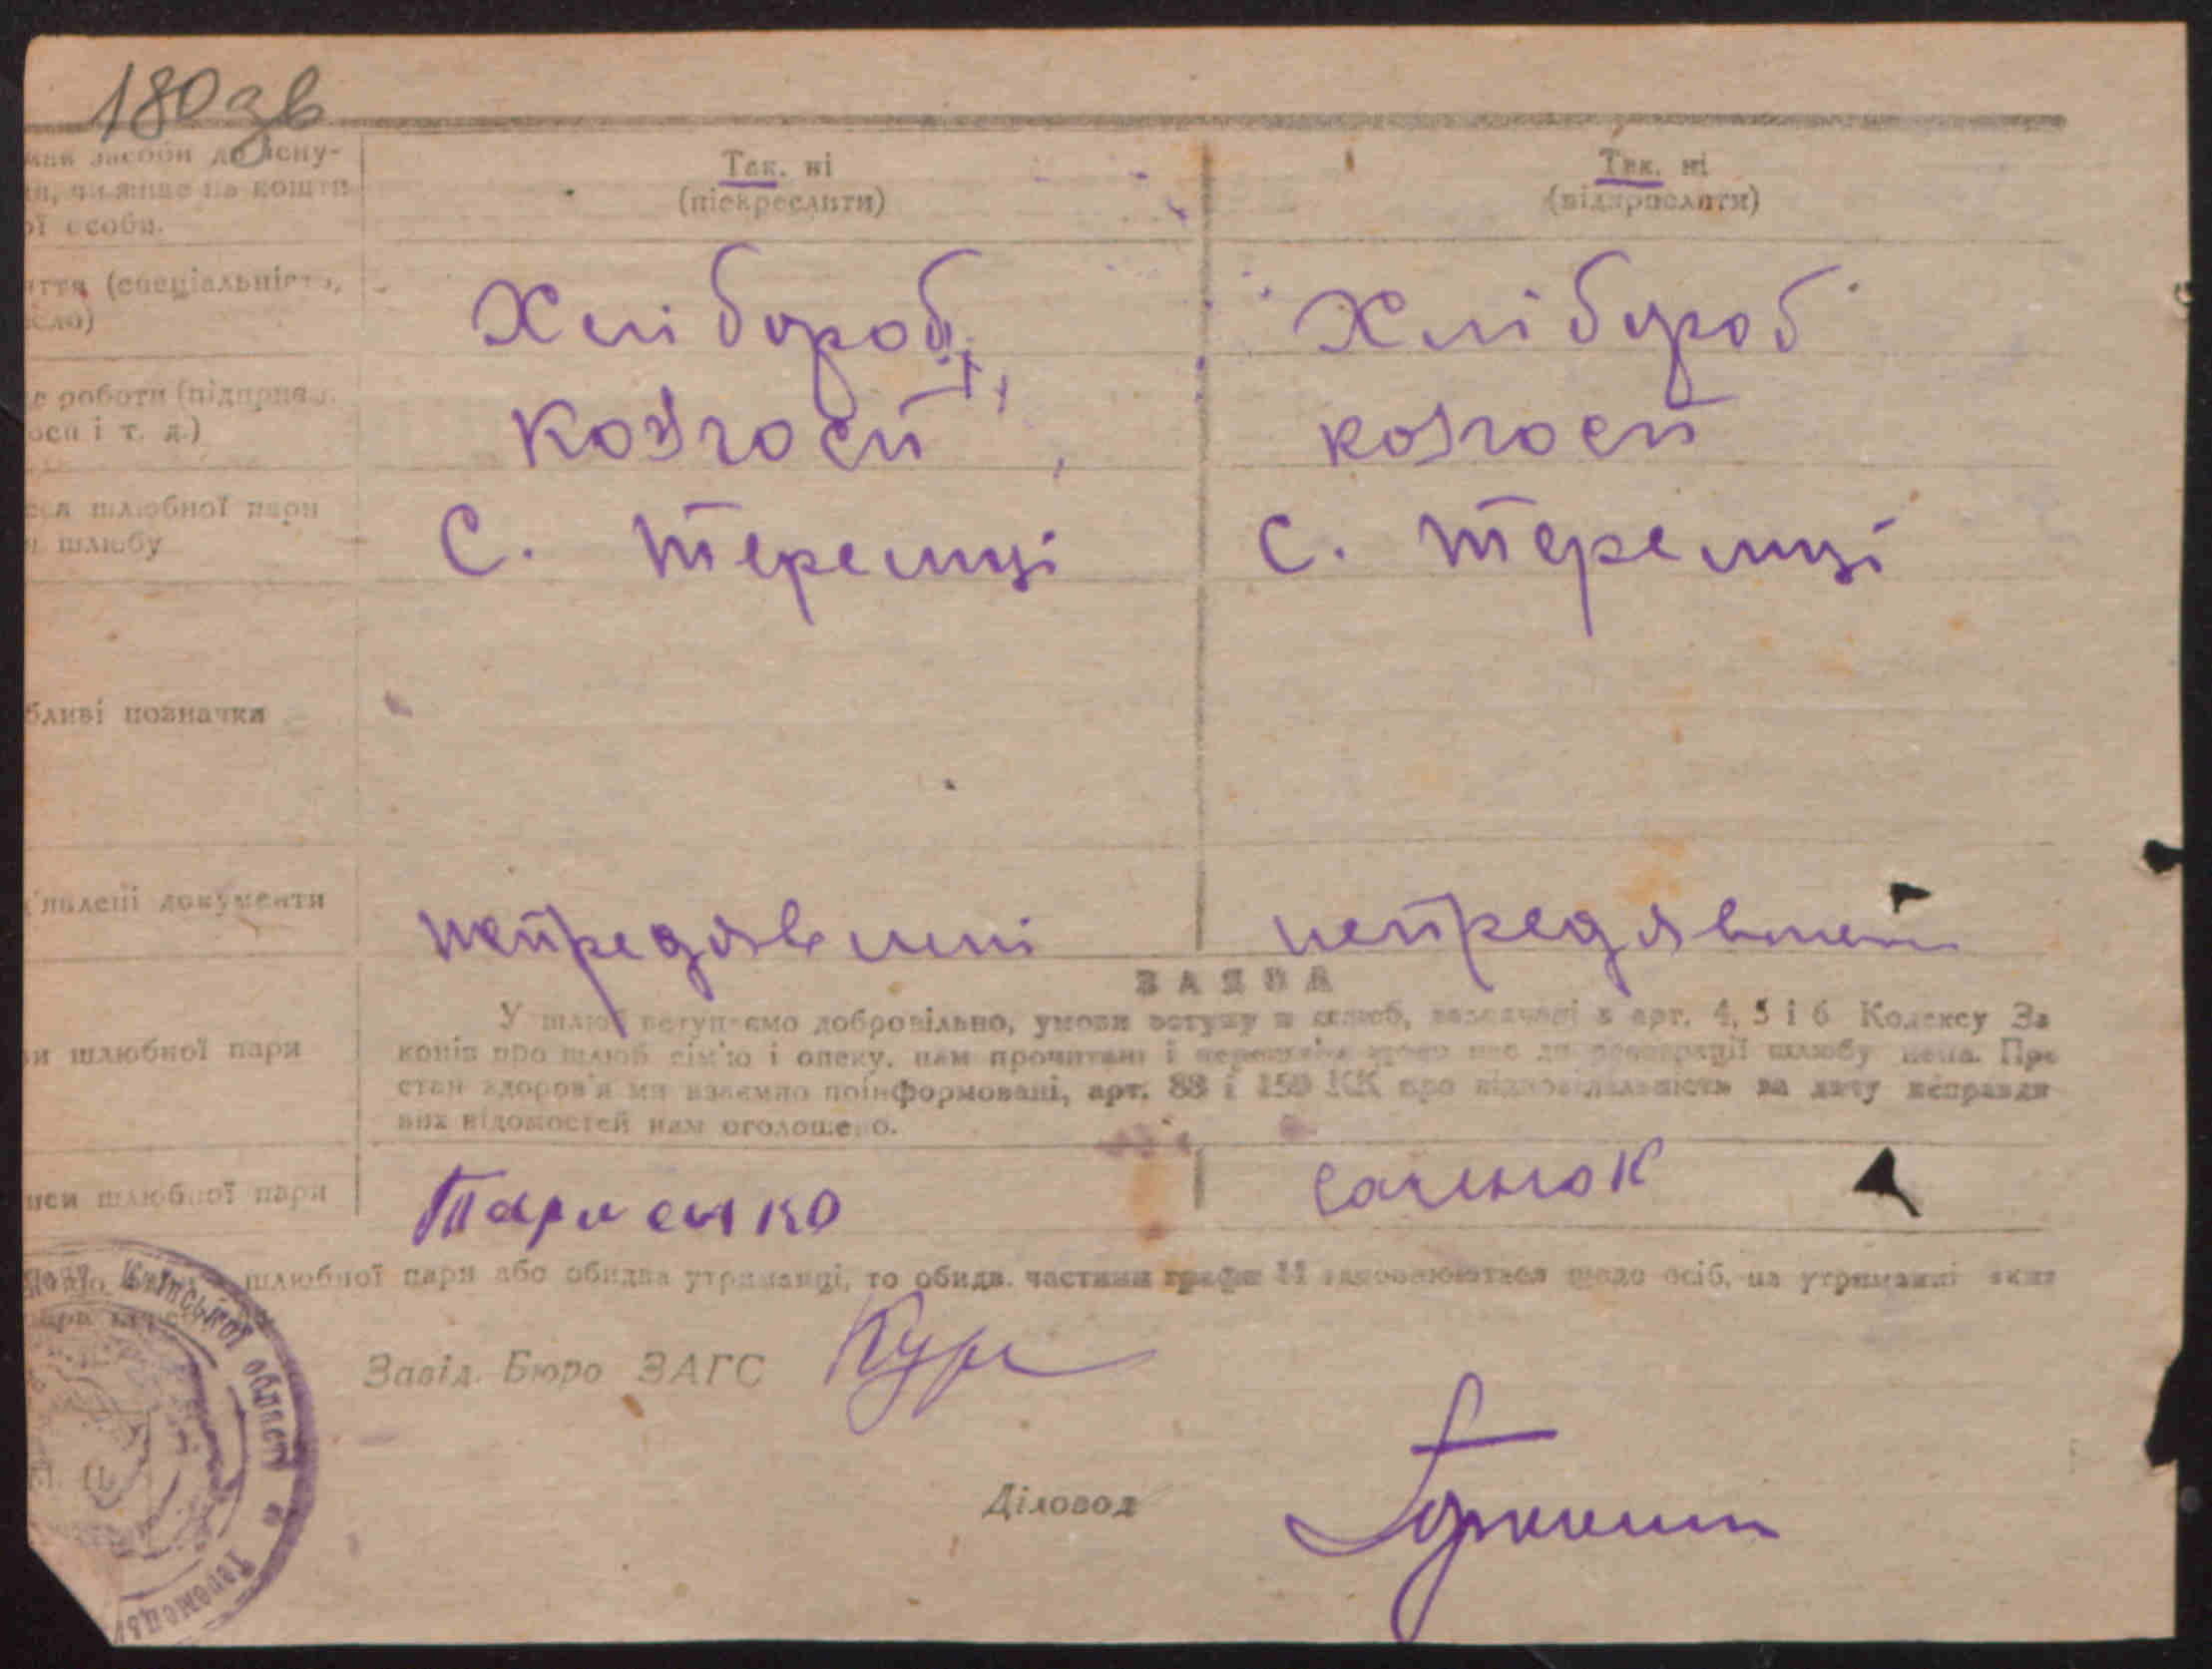 180 зв
має засоби до існу-
ня, чи живе на кошти
ої особи.
Так, ні
(підкреслити)
Так, ні
(підкреслити)
яття (спеціальність,
есло)
Хлібороб
Хлібороб
е роботи (підприєм.
оси і т. д.)
колгосп
колгосп
еса шлюбної пари
я шлюбу
С. Теремці
С. Теремці
бливі позначки
'явлені документи
непредявлені
непредявлені
ЗАЯВА
и шлюбної пари
У шлюб вступаємо добровільно, умови вступу в шлюб, зазначені в арт. 4, 5 і 6 Кодексу За
конів про шлюб сім'ю і опеку, нам прочитані і перешкод щодо нас до реєстрації шлюбу нема. Про
стан здоров'я ми взаємно поінформовані, арт. 88 і 150 КК про відповідальність за дачу неправди
вих відомостей нам оголошено.
иси шлюбної пари
Тарасенко
шлюбної пари або обидва утриманці, то обидв. частини графи 11 заповнюються щодо осіб, на утриманні яких
пари
Київської області
Завід. Бюро ЗАГС
Діловод